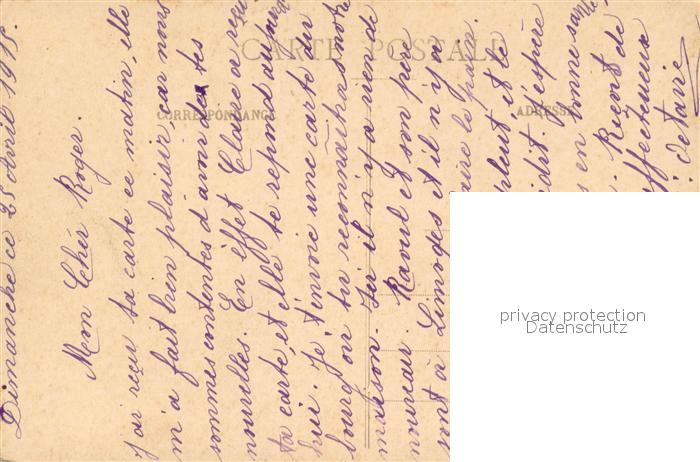 Dimanche ce 25 Avril 1915.
Mon Cher Roger.
J'ai reçu ta carte ce matin, elle
m'a fait bien plaisir, car nous
sommes contentes d'avoir de tes
nouvelles. En effet Claire a reçu
ta carte, et elle te répond aujourd'
hui. Je t'envoie une carte du
bourg où tu reconnaîtras notre
maison. Ici il n'y a rien de
nouveau. Raoul et son père
sont à Limoges et il n'y a
faire le pain.
pleut, et le
dit. J'espère
en bonne santé
Reçois de
affectueux
Octavie
CARTE POSTALE
CORRESPONDANCE
ADRESSE
privacy protection
Datenschutz